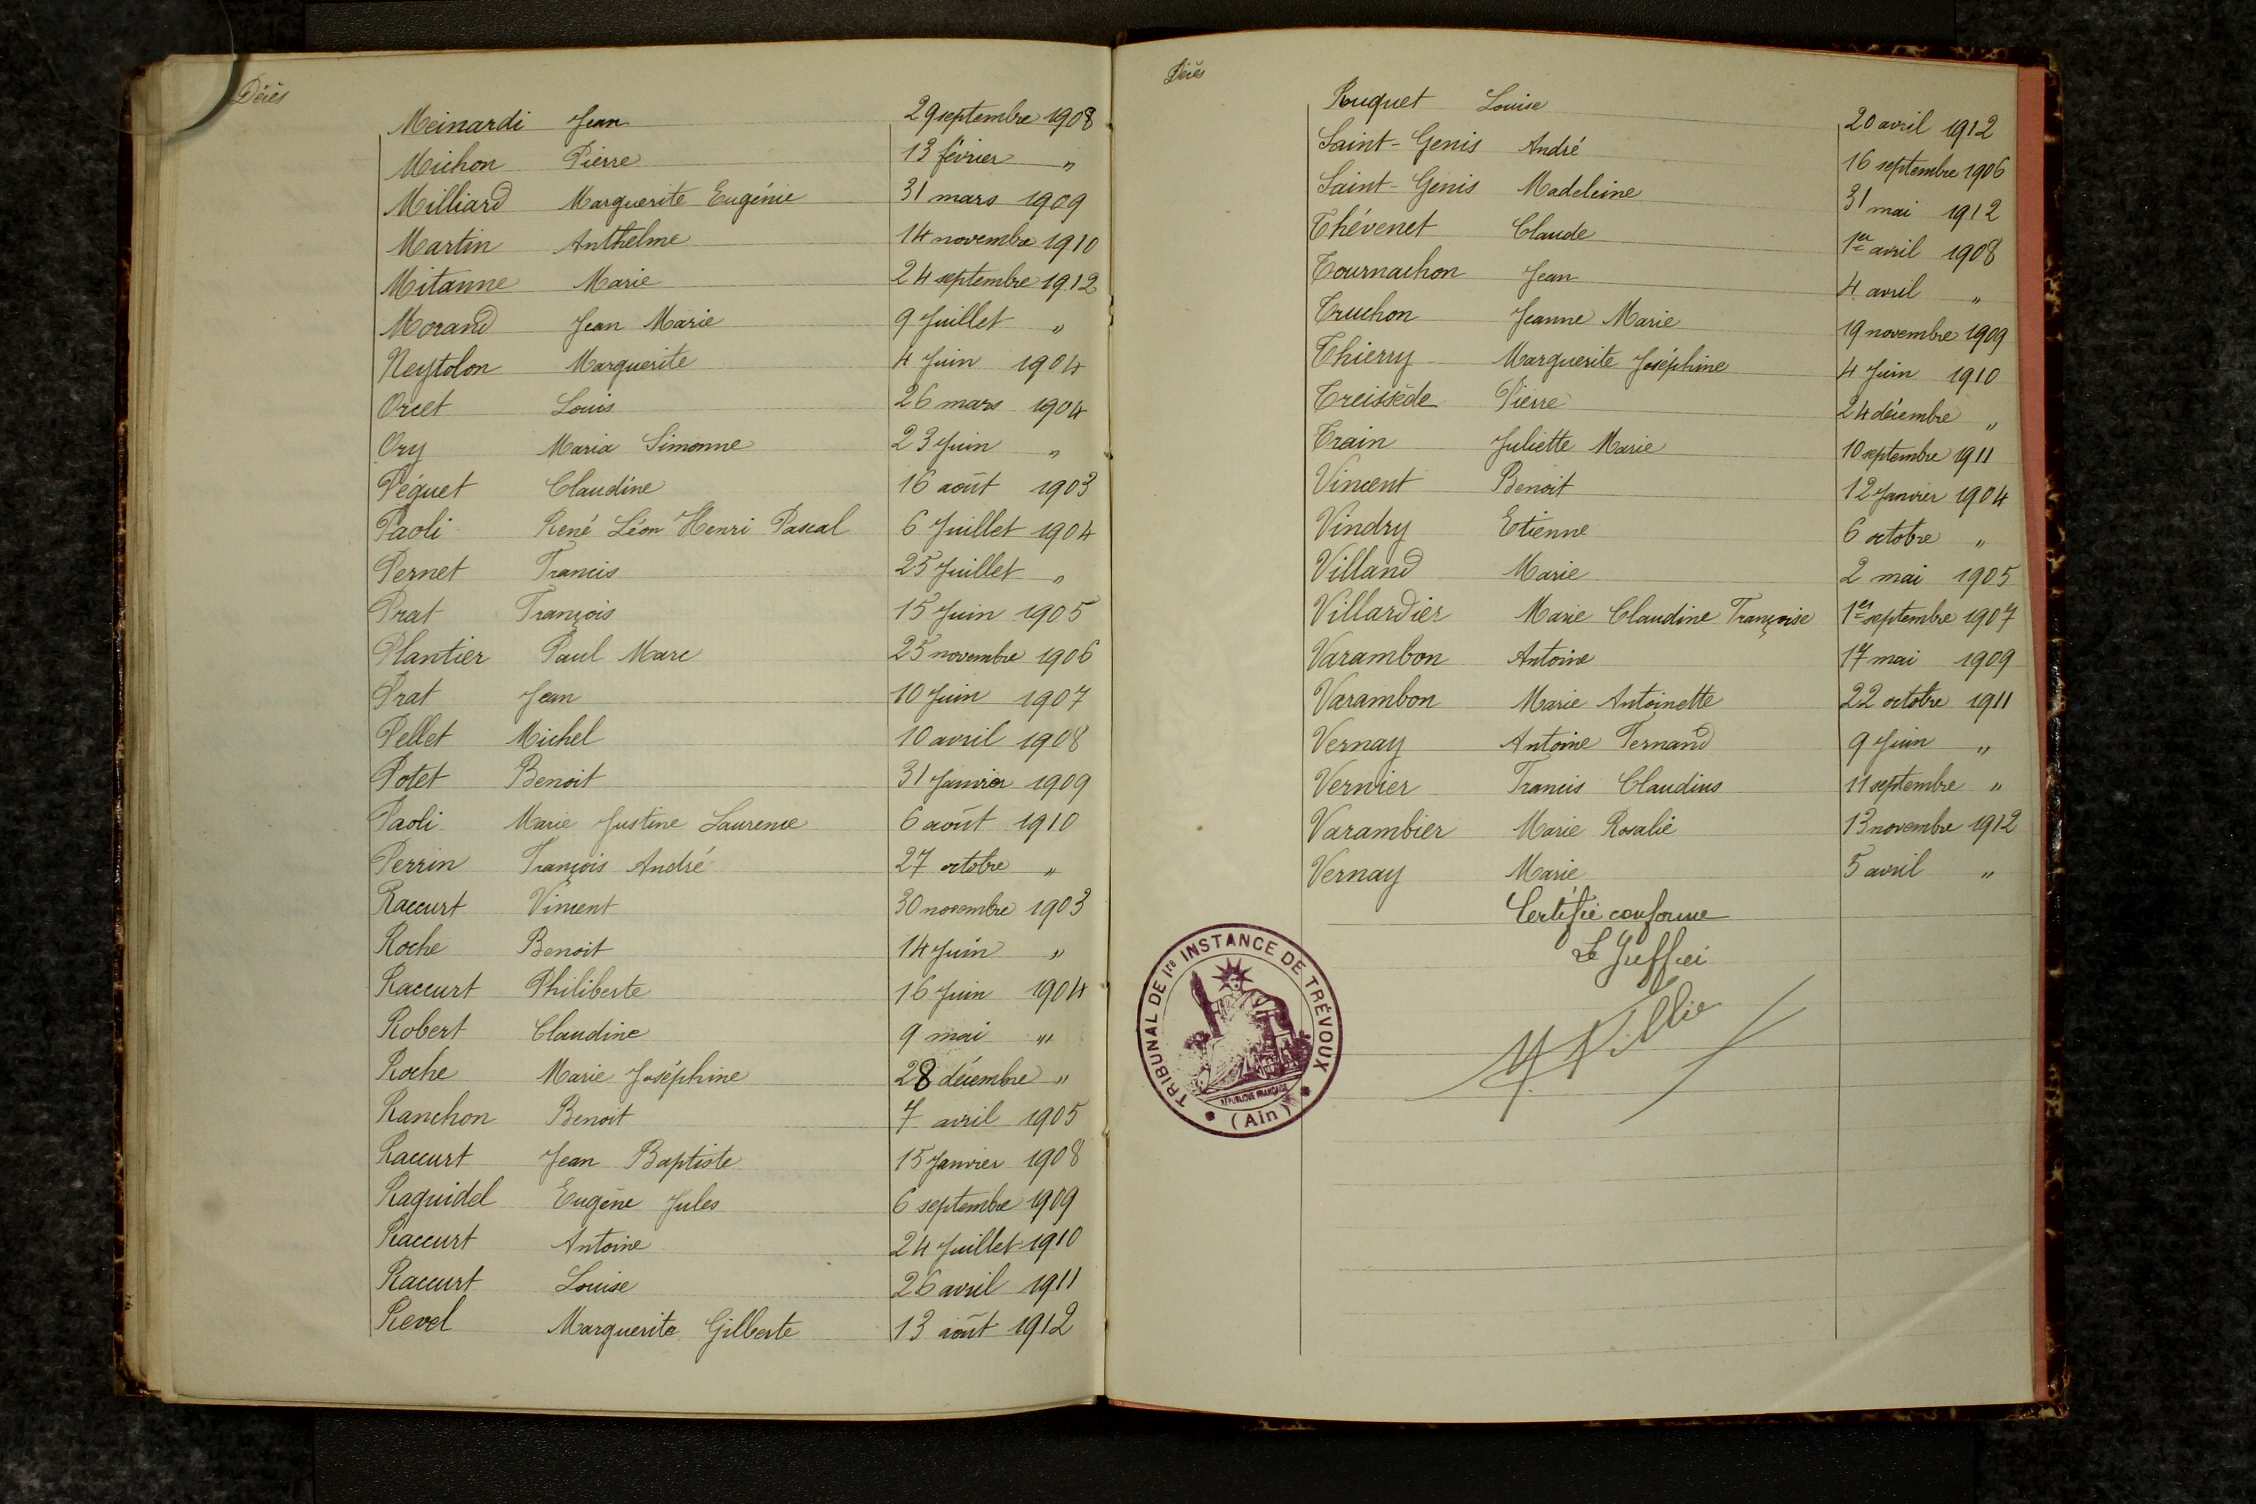 Décès
Meinardi Jean 29 septembre 1908
Michon Pierre 13 février "
Milliard Marguerite Eugénie 31 mars 1909
Martin Anthelme 14 novembre 1910
Mitanne Marie 24 septembre 1912
Morand Jean Marie 9 Juillet "
Neytolon Marguerite 4 Juin 1904
Orcet Louis 26 mars 1904
Ory Maria Simonne 23 Juin "
Péguet Claudine 16 août 1903
Paoli René Léon Henri Pascal 6 Juillet 1904
Pernet Francis 25 Juillet "
Prat François 15 Juin 1905
Plantier Paul Marc 25 novembre 1906
Prat Jean 10 Juin 1907
Pellet Michel 10 avril 1908
Potet Benoit 31 Janvier 1909
Paoli Marie Justine Laurence 6 août 1910
Perrin François André 27 octobre "
Raccurt Vincent 30 novembre 1903
Roche Benoit 14 Juin "
Raccurt Philiberte 16 Juin 1904
Robert Claudine 9 mai "
Roche Marie Joséphine 28 décembre "
Ranchon Benoit 7 avril 1905
Raccurt Jean Baptiste 15 Janvier 1908
Raguidel Eugène Jules 6 septembre 1909
Raccurt Antoine 24 Juillet 1910
Raccurt Louise 26 avril 1911
Revel Marguerite Gilberte 13 août 1912
Décès
Rouquet Louise 20 avril 1912
Saint-Genis André 16 septembre 1906
Saint-Genis Madeleine 31 mai 1912
Thévenet Claude 1er avril 1908
Tournachon Jean 4 avril "
Truchon Jeanne Marie 19 novembre 1909
Thierry Marguerite Joséphine 4 Juin 1910
Treissède Pierre 24 décembre "
Train Juliette Marie 10 septembre 1911
Vincent Benoit 12 Janvier 1904
Vindry Etienne 6 octobre "
Villand Marie 2 mai 1905
Villardier Marie Claudine Françoise 1er septembre 1907
Varambon Antoine 17 mai 1909
Varambon Marie Antoinette 22 octobre 1911
Vernay Antoine Fernand 9 Juin "
Vernier Francis Claudius 11 septembre "
Varambier Marie Rosalie 13 novembre 1912
Vernay Marie 5 avril "
Certifié conforme
Le Greffier
TRIBUNAL DE 1re INSTANCE DE TRÉVOUX
RÉPUBLIQUE FRANÇAISE
(Ain)